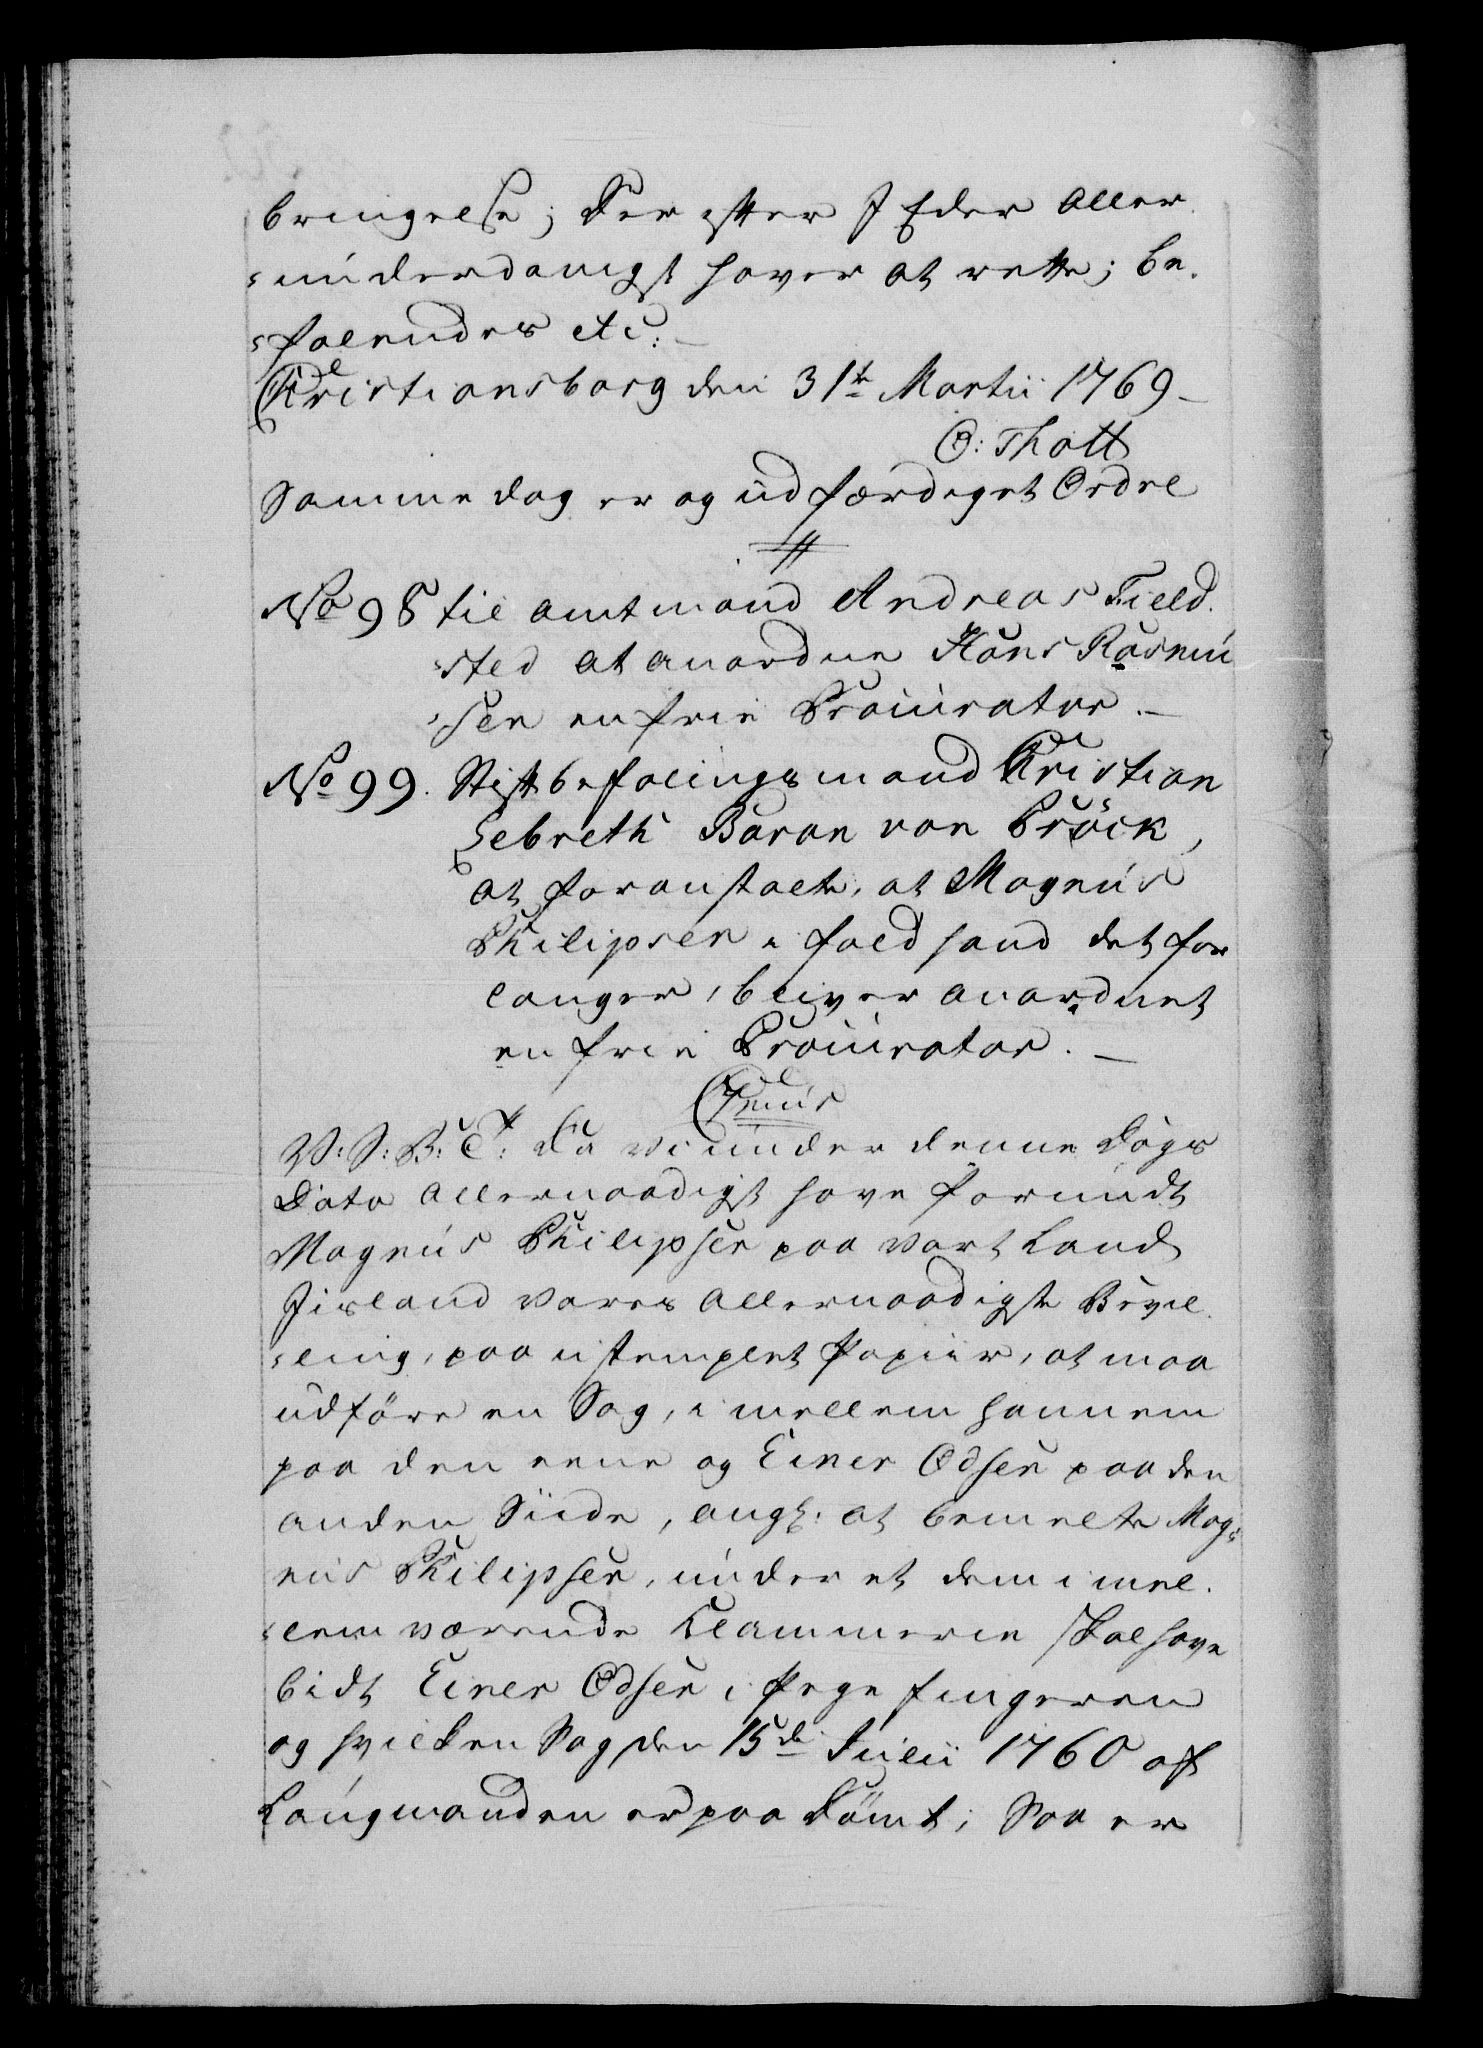 bringelse; Der efter I Eder Aller
=underdanigst haver at rette; be.
=falendes etc:
Christiansborg den 31te Martii 1769
O: Thott
Samme dag er og udfærdiget Ordre
No 98 til Amtmand Andreas Field.
=sted at anordne Hans Rasmu
=sen en frie Procurator.
No 99. Stiftbefalingsmand Christian
Lebreth Baron von Pröck,
at foranstalte, at Magnus
Philipsen i fald hand det for
langer, bliver anordnet
en frie Procurator.
Genus
V: S: B: T: Da vi under denne Dags
Dato Allernaadigst have forundt
Magnus Philipsen paa vort Land
Iisland vores Allernaadigste Bevil.
=ling, paa ustemplet Papiir, at maa
udföre en Sag, i mellem hannem
paa den eene og Einer Odsen paa den
anden Siide, angl: at bemelte Mag=
nus Philipsen, under et dem imel.
=lem værende Klammerie skal have
bidt Einer Odsen i Pege fingeren
og hvilken Sag den 15de Julii 1760 af
Laugmanden er paa Dömt; Saa er